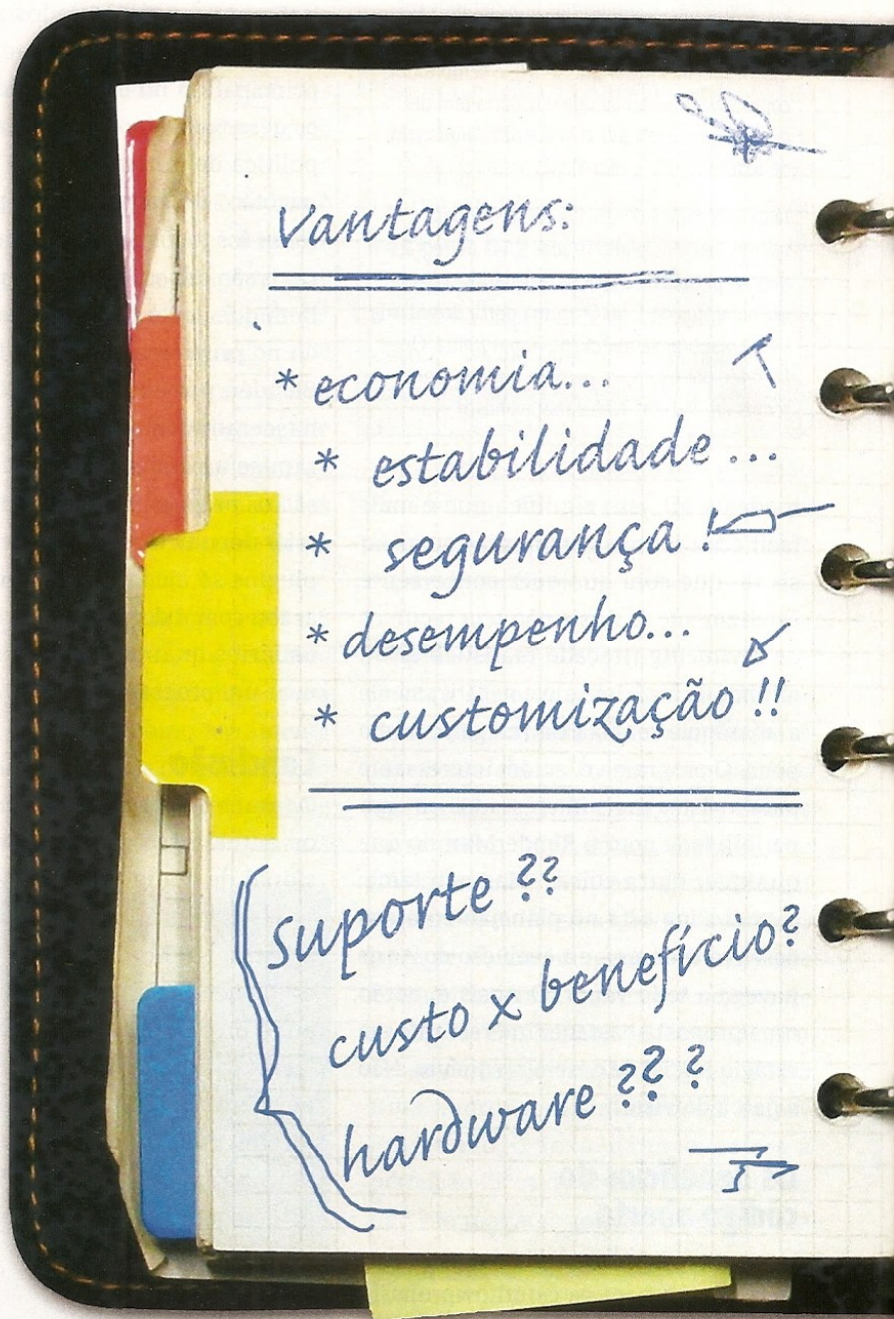 Vantagens:
* economia...
* estabilidade ...
* segurança !
* desempenho...
* customização !!
suporte ??
custo x benefício?
hardware ???